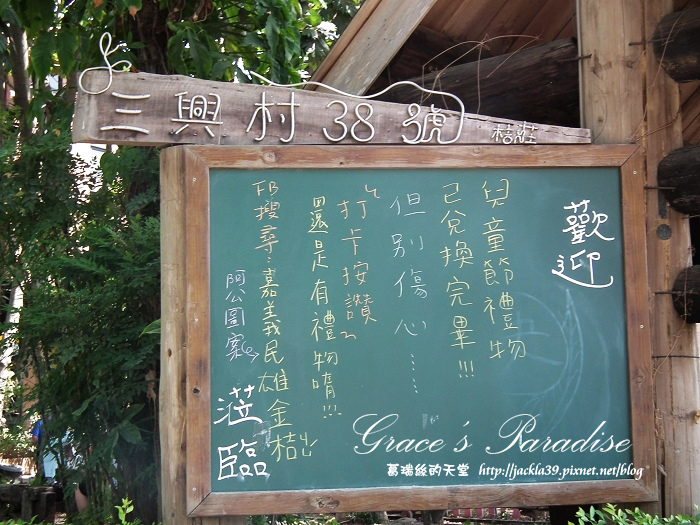 三興村38號 桔庄
歡迎
兒童節禮物
已兌換完畢!!!
但別傷心……
“打卡按讚”
還是有禮物唷!!!
FB搜尋:嘉義民雄金桔
阿公圖案
蒞臨
Grace's Paradise
葛瑞絲的天堂 http://jackla39.pixnet.net/blog